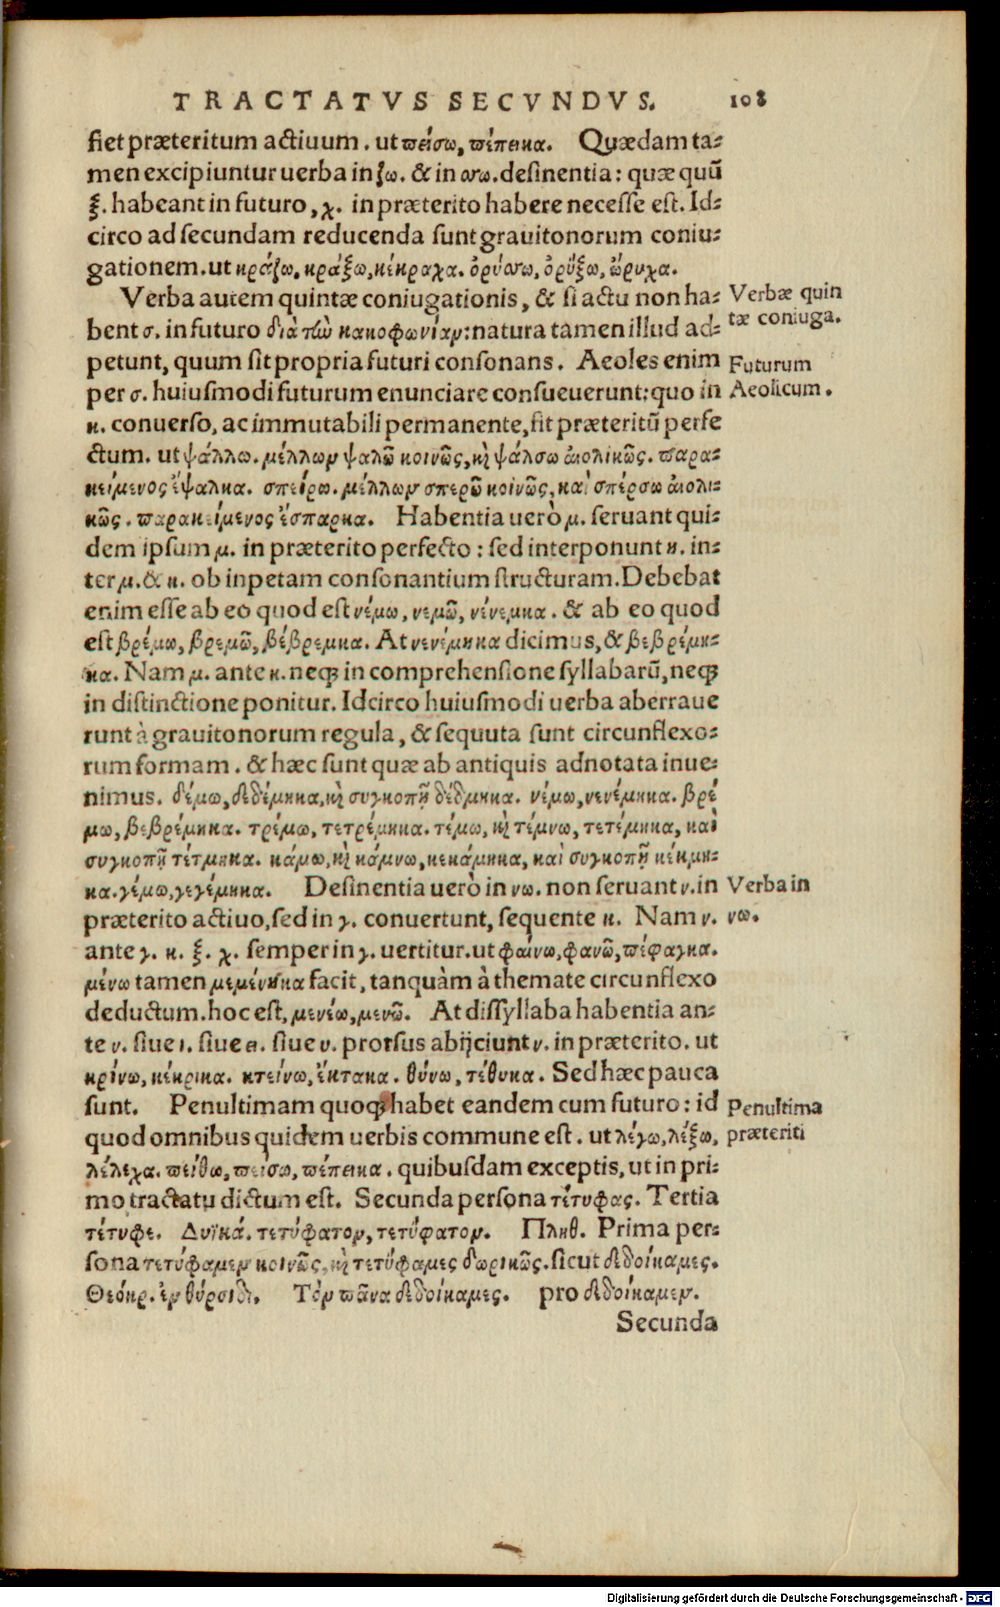 TRACTATVS SECVNDVS. 108
fiet præteritum actiuum. ut πείσω, πέπεικα. Quædam ta-
men excipiuntur uerba in ζω. & in σσω. desinentia: quæ quū
ξ. habeant in futuro, χ. in præterito habere necesse est. Id-
circo ad secundam reducenda sunt grauitonorum coniu-
gationem. ut κράζω, κράξω, κέκραχα. ὀρύσσω, ὀρύξω, ὤρυχα.
Verba autem quintæ coniugationis, & si actu non ha-
Verbæ quin
bent σ. in futuro διὰ τὴν κακοφωνίαν: natura tamen illud ad-
tæ coniuga.
petunt, quum sit propria futuri consonans. Aeoles enim
Futurum
per σ. huiusmodi futurum enunciare consueuerunt: quo in
Aeolicum.
κ. conuerso, ac immutabili permanente, fit præteritū perfe
ctum. ut ψάλλω. μέλλων ψαλῶ κοινῶς, κὶ ψάλσω αἰολικῶς. παρα-
κείμενος ἔψαλκα. σπείρω. μέλλων σπερῶ κοινῶς, καὶ σπέρσω αἰολι-
κῶς. παρακείμενος ἔσπαρκα. Habentia uerò μ. seruant qui-
dem ipsum μ. in præterito perfecto: sed interponunt η. in-
ter μ. & κ. ob inpetam consonantium structuram. Debebat
enim esse ab eo quod est νέμω, νεμῶ, νένεμκα. & ab eo quod
est βρέμω, βρεμῶ, βέβρεμκα. At νενέμηκα dicimus, & βεβρέμη-
κα. Nam μ. ante κ. neq; in comprehensione syllabarū, neq;
in distinctione ponitur. Idcirco huiusmodi uerba aberraue
runt à grauitonorum regula, & sequuta sunt circunflexo-
rum formam. & hæc sunt quæ ab antiquis adnotata inue-
nimus. δέμω, δεδέμηκα, κὶ συγκοπῇ δέδμηκα. νέμω, νενέμηκα. βρέ
μω, βεβρέμηκα. τρέμω, τετρέμηκα. τέμω, κὶ τέμνω, τετέμηκα, καὶ
συγκοπῇ τέτμηκα. κάμω, κὶ κάμνω, κεκάμηκα, καὶ συγκοπῇ κέκμη-
κα. γέμω, γεγέμηκα. Desinentia uerò in νω. non seruant ν. in
Verba in
præterito actiuo, sed in γ. conuertunt, sequente κ. Nam ν.
νω.
ante γ. κ. ξ. χ. semper in γ. uertitur. ut φαίνω, φανῶ, πέφαγκα.
μένω tamen μεμένηκα facit, tanquàm à themate circunflexo
deductum. hoc est, μενέω, μενῶ. At dissyllaba habentia an-
te ν. siue ι. siue ει. siue υ. prorsus abijciunt ν. in præterito. ut
κρίνω, κέκρικα. κτείνω, ἔκτακα. θύνω, τέθυκα. Sed hæc pauca
sunt. Penultimam quoq; habet eandem cum futuro: id
Penultima
quod omnibus quidem uerbis commune est. ut λέγω, λέξω,
præteriti
λέλεχα. πείθω, πείσω, πέπεικα. quibusdam exceptis, ut in pri-
mo tractatu dictum est. Secunda persona τέτυφας. Tertia
τέτυφε. Δυϊκά. τετύφατον, τετύφατον. Πληθ. Prima per-
sona τετύφαμεν κοινῶς, κὶ τετύφαμες δωρικῶς. sicut δεδοίκαμες.
Θεόκρ. ἐν θύρσιδι. Τὸν πᾶνα δεδοίκαμες. pro δεδοίκαμεν.
Secunda
Digitalisierung gefördert durch die Deutsche Forschungsgemeinschaft - DFG